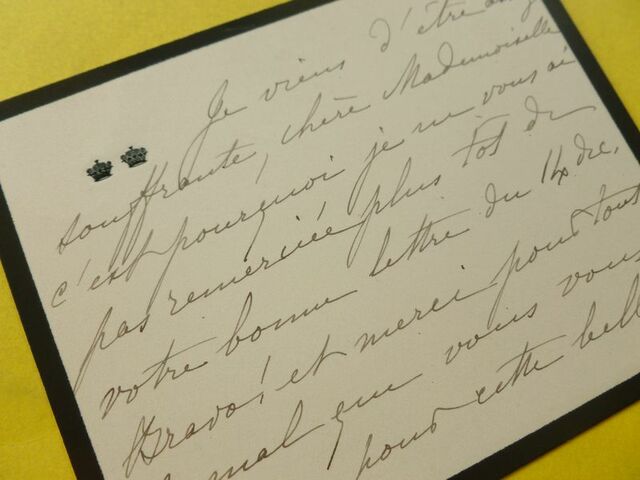 Je viens d'être
souffrante, chère Mademoiselle
c'est pourquoi je ne vous ai
pas remerciée plus tôt de
votre bonne lettre du 14 dec.
Bravo! et merci pour tout
mal que vous vous
pour cette bell